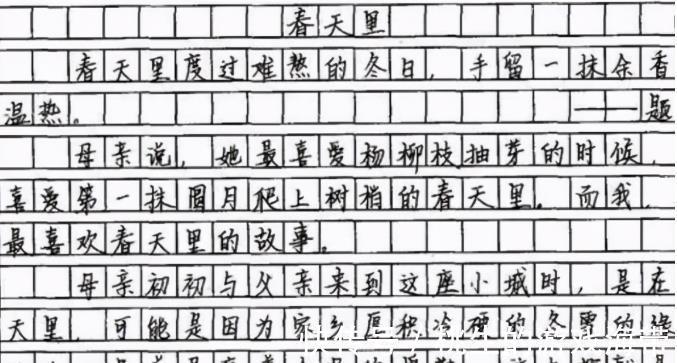 春天里
春天里度过难熬的冬日，手留一抹余香
温热。 ——题
母亲说，她最喜爱杨柳枝抽芽的时候，
喜爱第一抹圆月爬上树梢的春天里。而我，
最喜欢春天里的故事。
母亲初初与父亲来到这座小城时，是在
天里，可能是因为家乡厚积冷硬的冬雪的缘